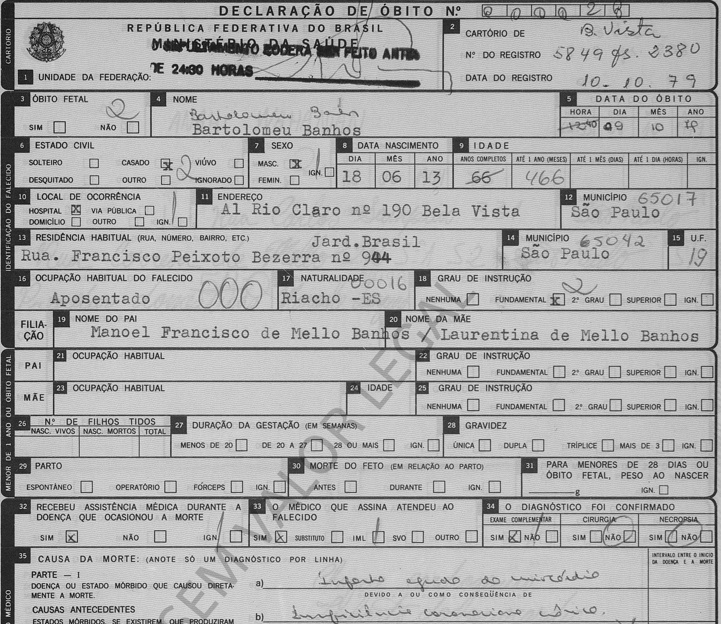 CARTÓRIO
DECLARAÇÃO DE ÓBITO Nº
REPÚBLICA FEDERATIVA DO BRASIL
MINISTÉRIO DA SAÚDE
SEPULTAMENTO PODERÁ SER FEITO ANTES
DE 24:30 HORAS
1 UNIDADE DA FEDERAÇÃO:
2 CARTÓRIO DE B. Vista
Nº DO REGISTRO 5849 fs. 238v
DATA DO REGISTRO 10-10.79
IDENTIFICAÇÃO DO FALECIDO
3 ÓBITO FETAL 2
SIM NÃO
4 NOME
Bartolomeu Banhos
Bartolomeu Banhos
5 DATA DO ÓBITO
HORA DIA MÊS ANO
09 10 79
6 ESTADO CIVIL
SOLTEIRO CASADO x VIÚVO
DESQUITADO OUTRO 2 IGNORADO
7 SEXO
MASC. x IGN. 1
FEMIN.
8 DATA NASCIMENTO
DIA MÊS ANO
18 06 13
9 IDADE
ANOS COMPLETOS ATÉ 1 ANO (MESES) ATÉ 1 MÊS (DIAS) ATÉ 1 DIA (HORAS) IGN.
66 466
10 LOCAL DE OCORRÊNCIA
HOSPITAL x VIA PÚBLICA 1
DOMICÍLIO OUTRO IGN.
11 ENDEREÇO
Al Rio Claro nº 190 Bela Vista
12 MUNICÍPIO 65017
São Paulo
13 RESIDÊNCIA HABITUAL (RUA, NÚMERO, BAIRRO, ETC.) Jard.Brasil
Rua. Francisco Peixoto Bezerra nº 944
14 MUNICÍPIO 65042
São Paulo
15 U.F.
19
16 OCUPAÇÃO HABITUAL DO FALECIDO
Aposentado 000
17 NATURALIDADE
00016
Riacho -ES
18 GRAU DE INSTRUÇÃO 2
NENHUMA FUNDAMENTAL x 2º GRAU SUPERIOR IGN.
FILIAÇÃO
19 NOME DO PAI
Manoel Francisco de Mello Banhos /
20 NOME DA MÃE
Laurentina de Mello Banhos
MENOR DE 1 ANO OU ÓBITO FETAL
PAI
21 OCUPAÇÃO HABITUAL
22 GRAU DE INSTRUÇÃO
NENHUMA FUNDAMENTAL 2º GRAU SUPERIOR IGN.
MÃE
23 OCUPAÇÃO HABITUAL
24 IDADE
25 GRAU DE INSTRUÇÃO
NENHUMA FUNDAMENTAL 2º GRAU SUPERIOR IGN.
26 Nº DE FILHOS TIDOS
NASC. VIVOS NASC. MORTOS TOTAL
27 DURAÇÃO DA GESTAÇÃO (EM SEMANAS)
MENOS DE 20 DE 20 A 27 28 OU MAIS IGN.
28 GRAVIDEZ
ÚNICA DUPLA TRÍPLICE MAIS DE 3 IGN.
29 PARTO
ESPONTÂNEO OPERATÓRIO FÓRCEPS IGN.
30 MORTE DO FETO (EM RELAÇÃO AO PARTO)
ANTES DURANTE IGN.
31 PARA MENORES DE 28 DIAS OU
ÓBITO FETAL, PESO AO NASCER
g IGN.
MÉDICO
32 RECEBEU ASSISTÊNCIA MÉDICA DURANTE A
DOENÇA QUE OCASIONOU A MORTE
SIM x NÃO IGN.
33 O MÉDICO QUE ASSINA ATENDEU AO
FALECIDO
SIM x SUBSTITUTO IML SVO OUTRO
34 O DIAGNÓSTICO FOI CONFIRMADO
EXAME COMPLEMENTAR CIRURGIA NECROPSIA
SIM x NÃO SIM NÃO SIM NÃO
35 CAUSA DA MORTE: (ANOTE SÓ UM DIAGNÓSTICO POR LINHA)
INTERVALO ENTRE O INÍCIO
DA DOENÇA E A MORTE
PARTE — I
DOENÇA OU ESTADO MÓRBIDO QUE CAUSOU DIRETA-
MENTE A MORTE.
a) Infarto agudo do miocárdio
DEVIDO A OU COMO CONSEQÜÊNCIA DE
CAUSAS ANTECEDENTES
ESTADOS MÓRBIDOS, SE EXISTIREM, QUE PRODUZIRAM
b) Insuficiência coronariana crônica.
SEM VALOR LEGAL